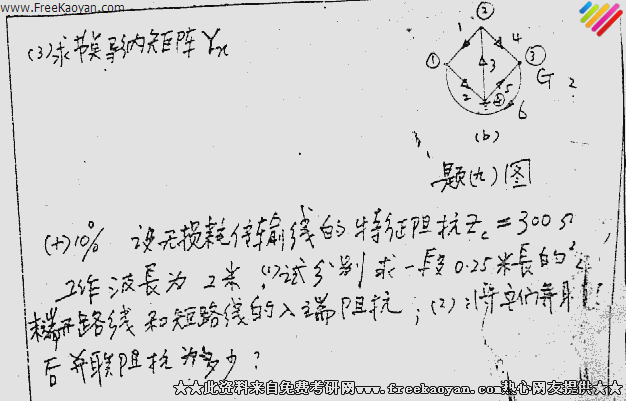 www.FreeKaoyan.com
(3)求节点导纳矩阵Yn
② 1 4 ① 3 ③ 2 ④ 5 6 G 2
(b)
题(九)图
(十)10% 设无损耗传输线的特征阻抗Zc=300Ω,
工作波長为2米,(1)试分别求一段0.25米長的
末端开路线和短路线的入端阻抗;(2)将它们并联
后并联阻抗为多少?
★★此资料来自免费考研网www.freekaoyan.com热心网友提供★★